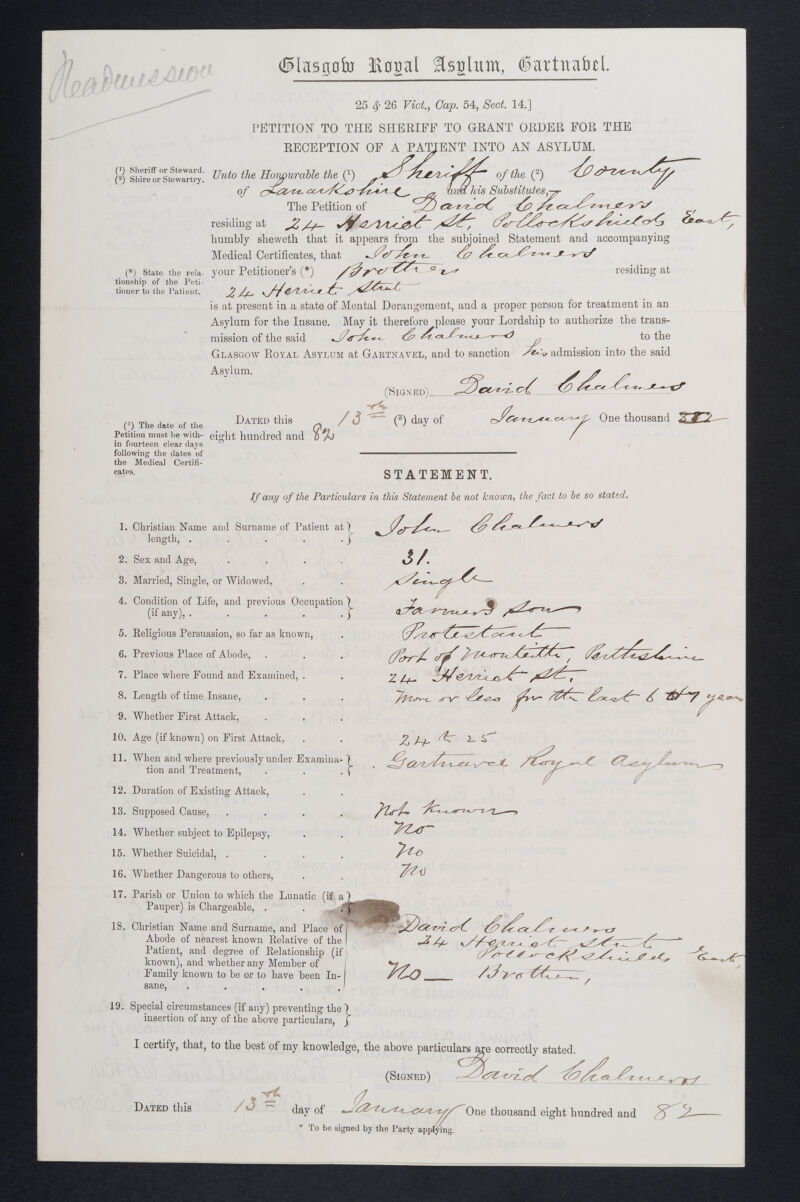 Readmission
Glasgow Royal Asylum, Gartnavel.
25 & 26 Vict., Cap. 54, Sect. 14.]
PETITION TO THE SHERIFF TO GRANT ORDER FOR THE
RECEPTION OF A PATIENT INTO AN ASYLUM.
(¹) Sheriff or Steward.
(²) Shire or Stewartry.
Unto the Honourable the (¹) Sheriff of the (²) County
of Lanarkshire and his Substitutes,—
The Petition of David Chalmers
residing at 24 Herriet St, Pollockshields East,
humbly sheweth that it appears from the subjoined Statement and accompanying
Medical Certificates, that John Chalmers
(*) State the rela-
tionship of the Peti-
tioner to the Patient.
your Petitioner's (*) Brother residing at
24 Herriet Street
is at present in a state of Mental Derangement, and a proper person for treatment in an
Asylum for the Insane. May it therefore please your Lordship to authorize the trans-
mission of the said John Chalmers to the
GLASGOW ROYAL ASYLUM at GARTNAVEL, and to sanction his admission into the said
Asylum.
(SIGNED) David Chalmers
(³) The date of the
Petition must be with-
in fourteen clear days
following the dates of
the Medical Certifi-
cates.
DATED this 13th (³) day of January One thousand
eight hundred and 82
STATEMENT.
If any of the Particulars in this Statement be not known, the fact to be so stated.
1. Christian Name and Surname of Patient at length, . . . . . John Chalmers
2. Sex and Age, . . . . 31.
3. Married, Single, or Widowed, . . Single
4. Condition of Life, and previous Occupation (if any), . . . . . Farmer's son
5. Religious Persuasion, so far as known, . Protestant
6. Previous Place of Abode, . . . Port of Monteith, Perthshire
7. Place where Found and Examined, . . 24 Herriet St.
8. Length of time Insane, . . More or less for the last 6 or 7 years
9. Whether First Attack, . . .
10. Age (if known) on First Attack, . . 24 to 25
11. When and where previously under Examina-
tion and Treatment, . . . Gartnavel Royal Asylum
12. Duration of Existing Attack, . .
13. Supposed Cause, . . . . Not Known
14. Whether subject to Epilepsy, . . No
15. Whether Suicidal, . . . . No
16. Whether Dangerous to others, . . No
17. Parish or Union to which the Lunatic (if a
Pauper) is Chargeable, . . .
18. Christian Name and Surname, and Place of David Chalmers
Abode of nearest known Relative of the 24 Herriet Street
Patient, and degree of Relationship (if Pollockshields East,
known), and whether any Member of
Family known to be or to have been In- No — Brother,
sane, . . . . .
19. Special circumstances (if any) preventing the
insertion of any of the above particulars,
I certify, that, to the best of my knowledge, the above particulars are correctly stated.
(SIGNED) David Chalmers
DATED this 13th day of January One thousand eight hundred and 82
* To be signed by the Party applying.